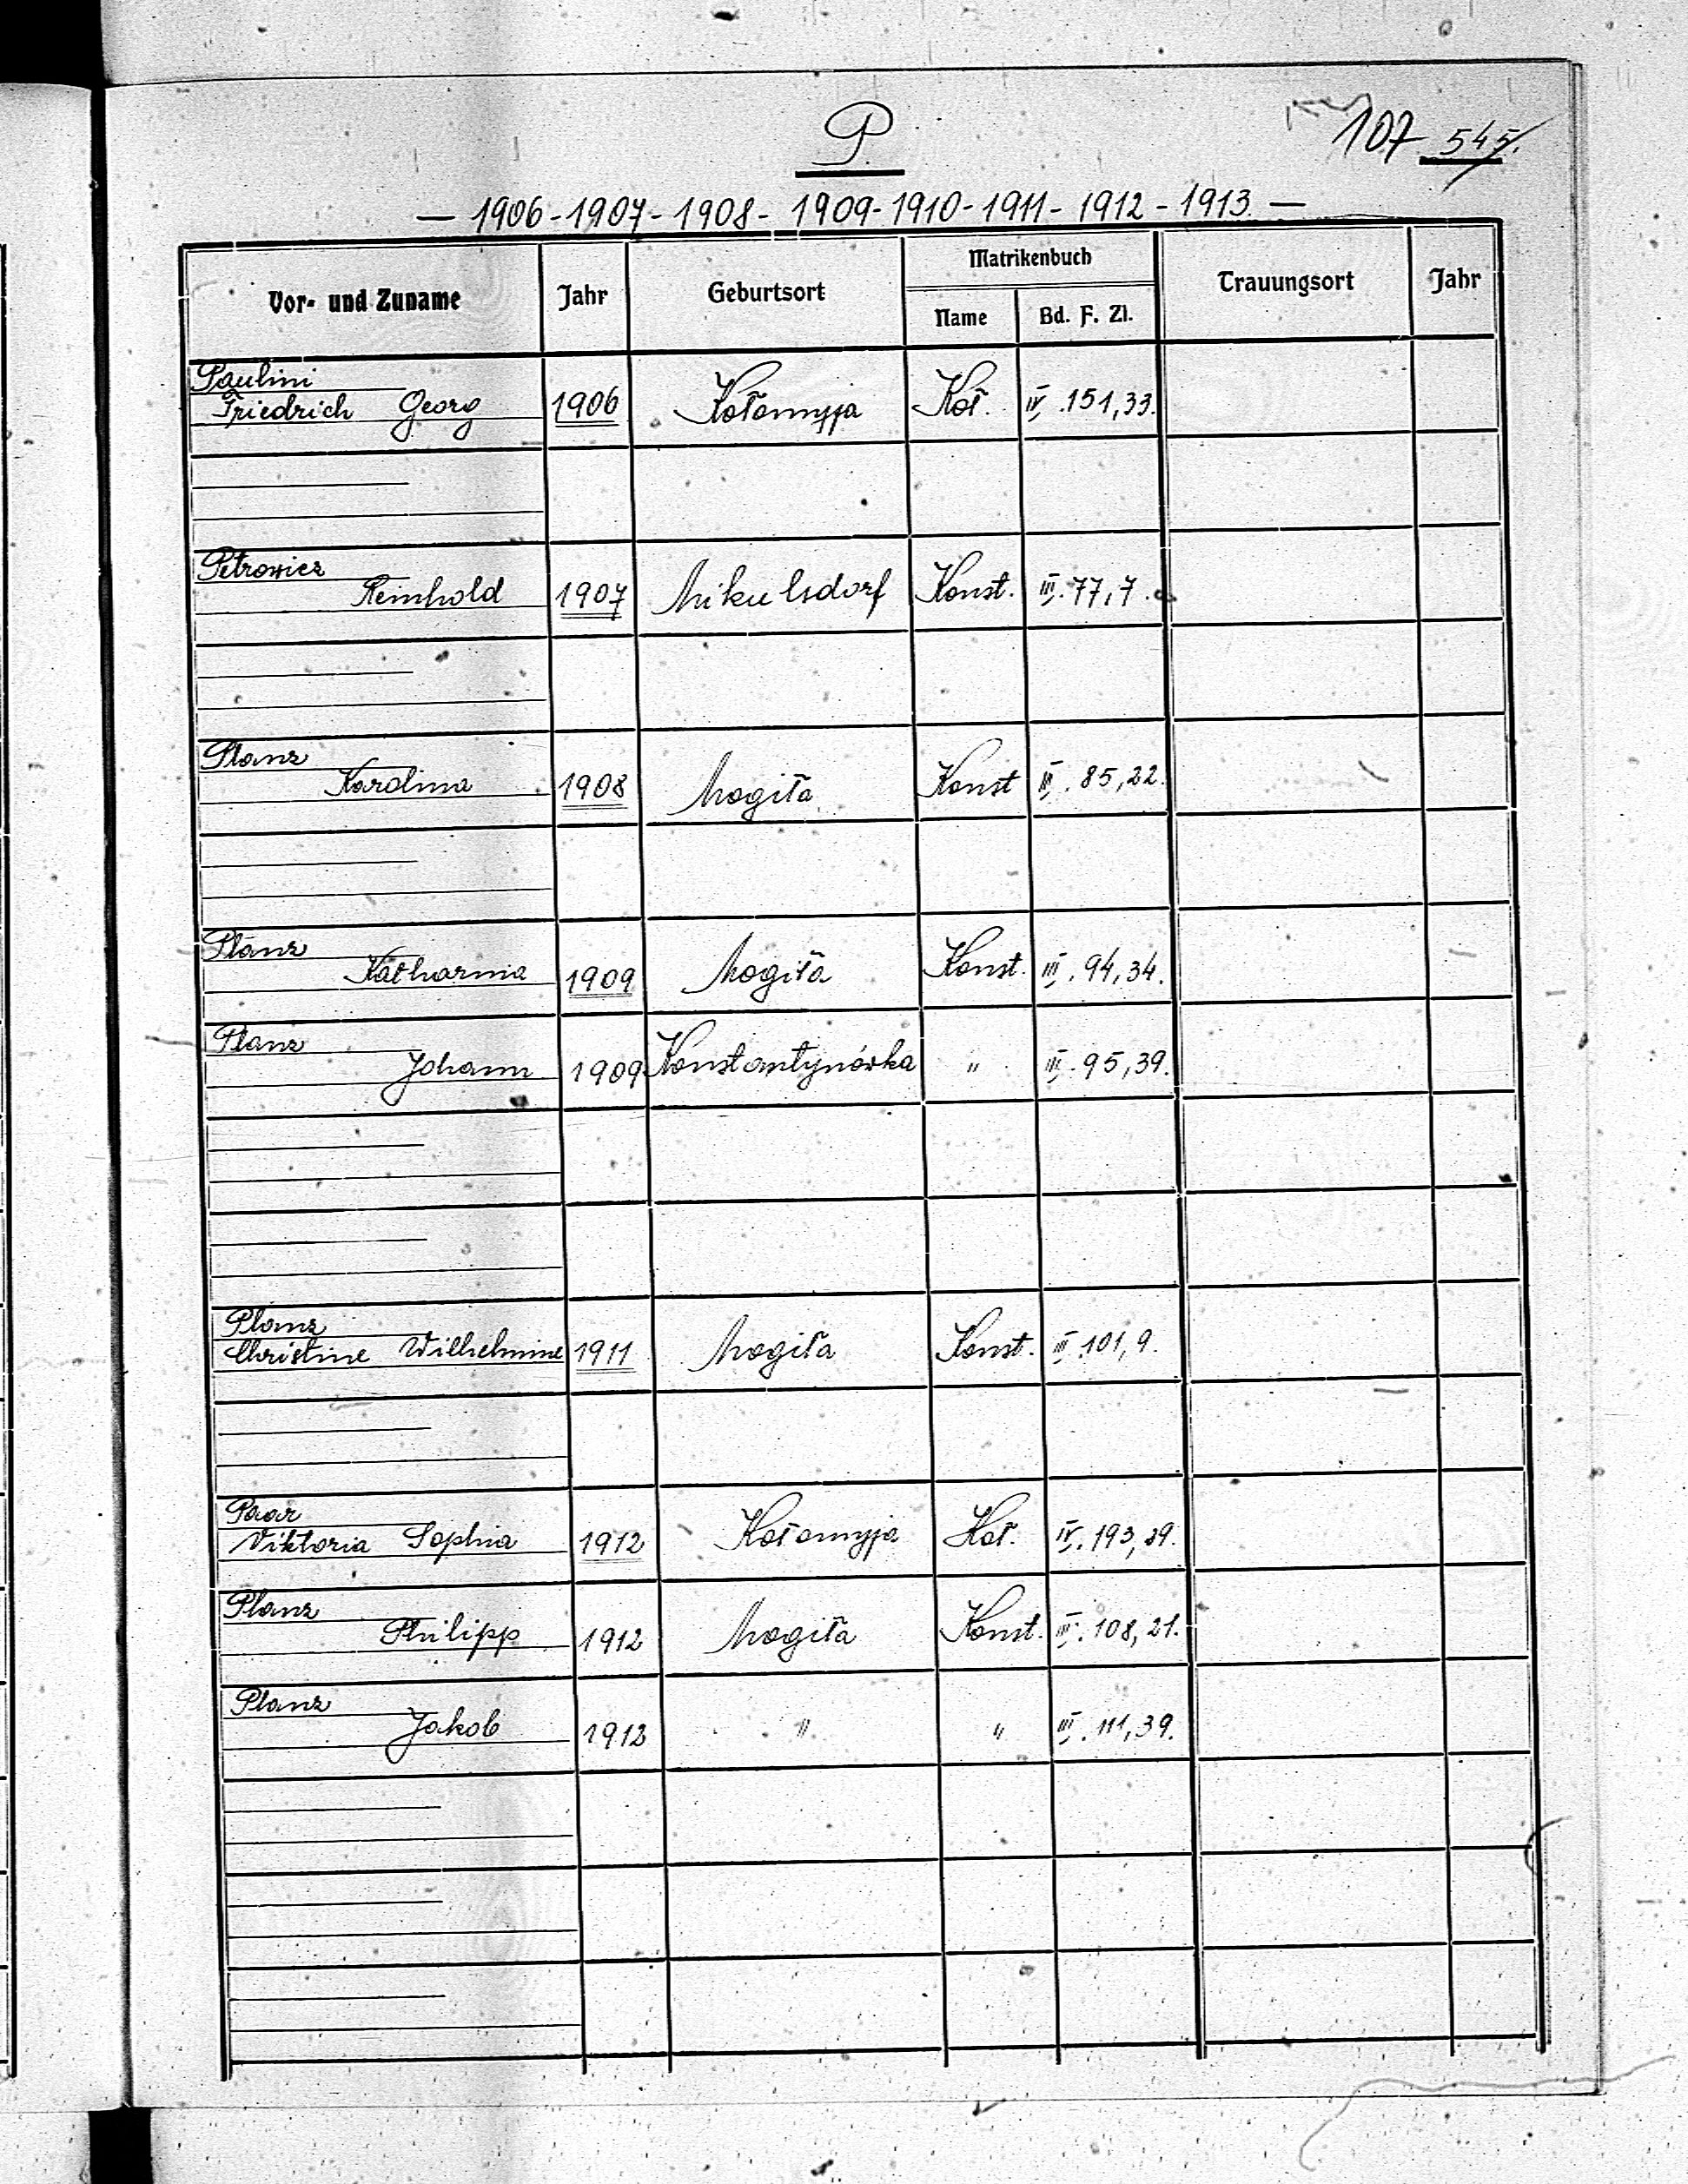 P.
107 545.
— 1906-1907-1908-1909-1910-1911-1912-1913. —
Vor- und Zuname Jahr Geburtsort Matrikenbuch Trauungsort Jahr
Name Bd. F. Zl.
Paulini
Friedrich Georg 1906 Kołomyja Koł. IV.151,33.
Petrowicz
Reinhold 1907 Mikulsdorf Konst. III.77,7.
Planz
Karolina 1908 Mogiła Konst III.85,22.
Planz
Katharina 1909 Mogiła Konst. III.94,34.
Planz
Johann 1909 Konstantynówka " III.95,39.
Planz
Christine Wilhelmine 1911 Mogiła Konst. III.101,9.
Paar
Viktoria Sophia 1912 Kołomyja Koł. IV.193,29.
Planz
Philipp 1912 Mogiła Konst. III.108,21.
Planz
Jakob 1912 " " III.111,39.